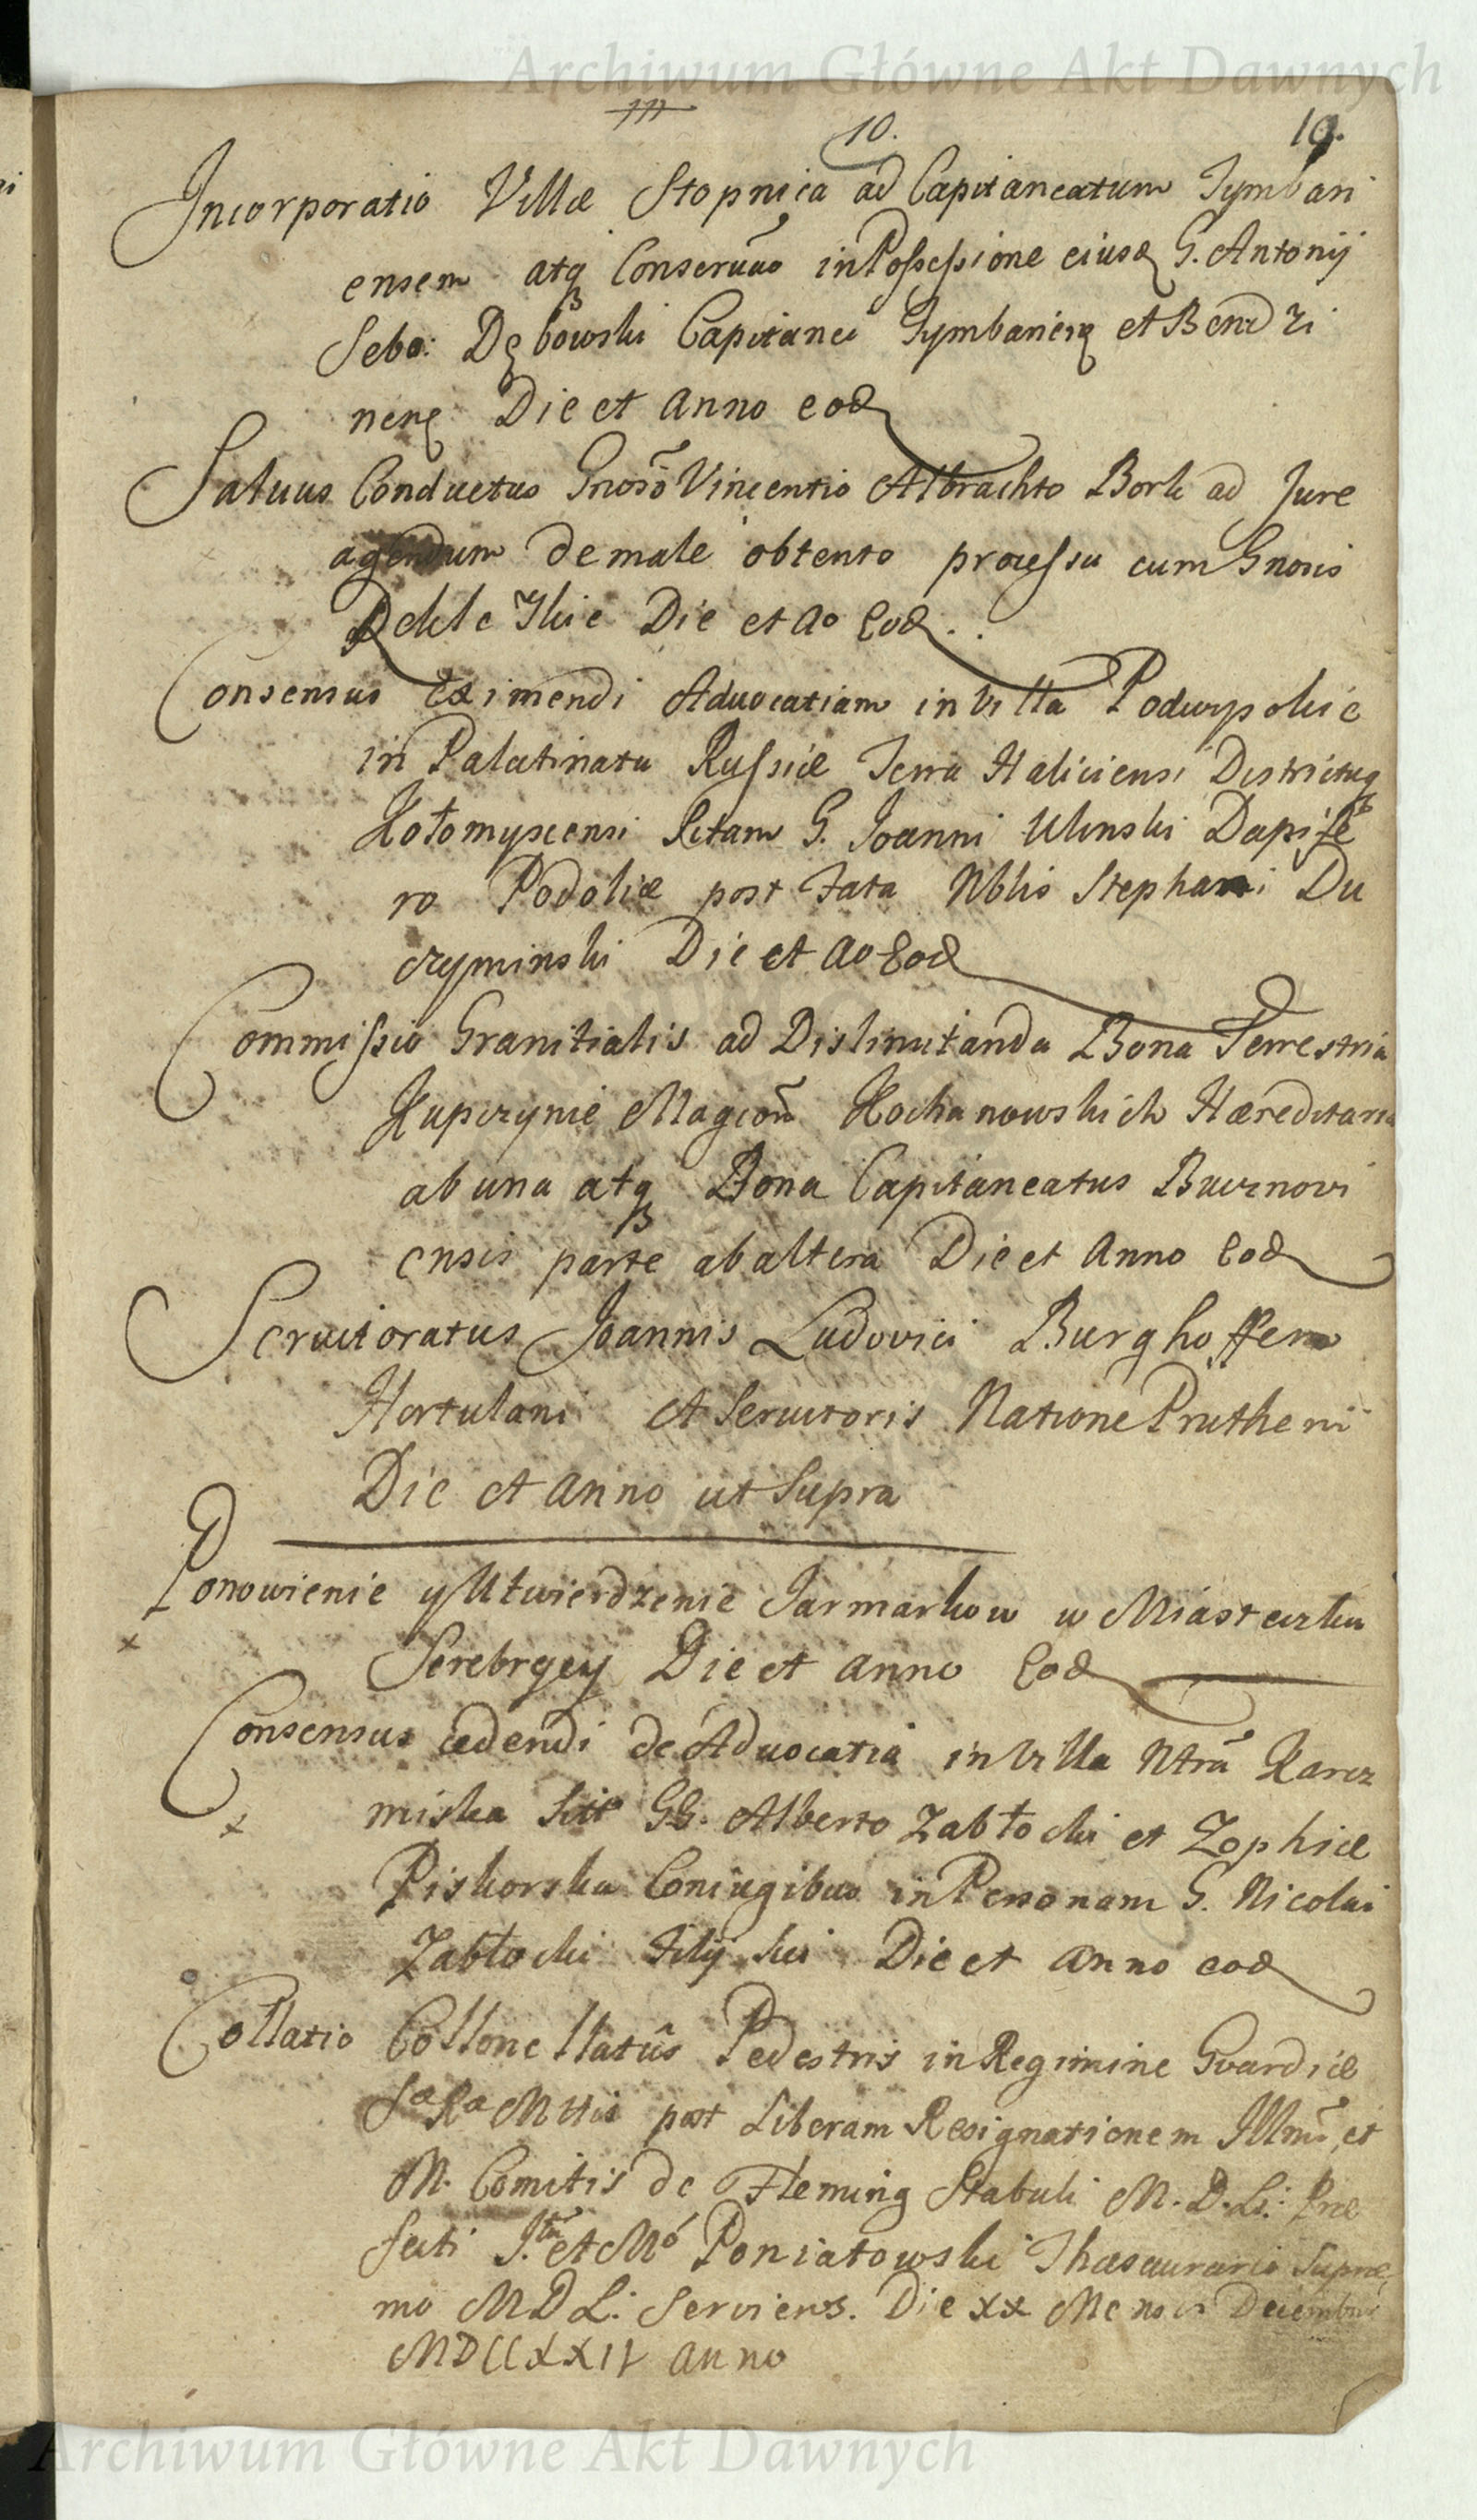 Archiwum Główne Akt Dawnych
10.
19.
Incorporatio Villæ Stopnica ad Capitaneatum Tymbari
ensem atq Conseruao in Possessione eiusd G. Antonij
Sebo: Dębowski Capitanei Tymbariens et Bendzi
nens Die et Anno eod
Saluus Conductus Gnoso Vincentio Albrachto Bork ad Jure
agendum de male obtento processu cum Gnosis
Die et Ao Eod
Consensus Eximendi Aduocatiam in Villa Podwypolkie
in Palatinatu Russiæ Terra Haliciensi Districtuq
Kołomyscensi Sitam G. Joanni Ulinski Dapife
ro Podoliæ post Fata Nblis Stephani Du
czyminski Die et Ao Eod
Commissio Granitialis ad Dislimitanda Bona Terrestria
Kupczynie Magcorū Kochanowskich Hæreditaria
ab una atq Bona Capitaneatus Buczniovi
ensis parte ab altera Die et Anno Eod
Seruitoratus Joannis Ludovici Burghoffem
Hortulani et Seruitoris Natione Prutheni
Die et Anno ut Supra
Ponowienie y Utwierdzenie Jarmarkow w Miasteczku
Serebrgey Die et Anno Eod
Consensus cedendi de Aduocatia in Villa Ntra Karcz
miska GG. Alberto Zabłocki et Zophiæ
Piskorska Coniugibus in Personam G. Nicolai
Zabłocki Filij Sui Die et Anno eod
Collatio Collonellatûs Pedestris in Regimine Gvardiæ
Sæ Ræ Mttis post Liberam Resignationem Illmi et
M. Comitis de Fleming Stabuli M. D. Li: Præ
fecti I. et Mo Poniatowski Thæsaurario Supre
mo M D L: Serviens. Die xx Mensis Decembris
MDCCXXIV Anno
Archiwum Główne Akt Dawnych